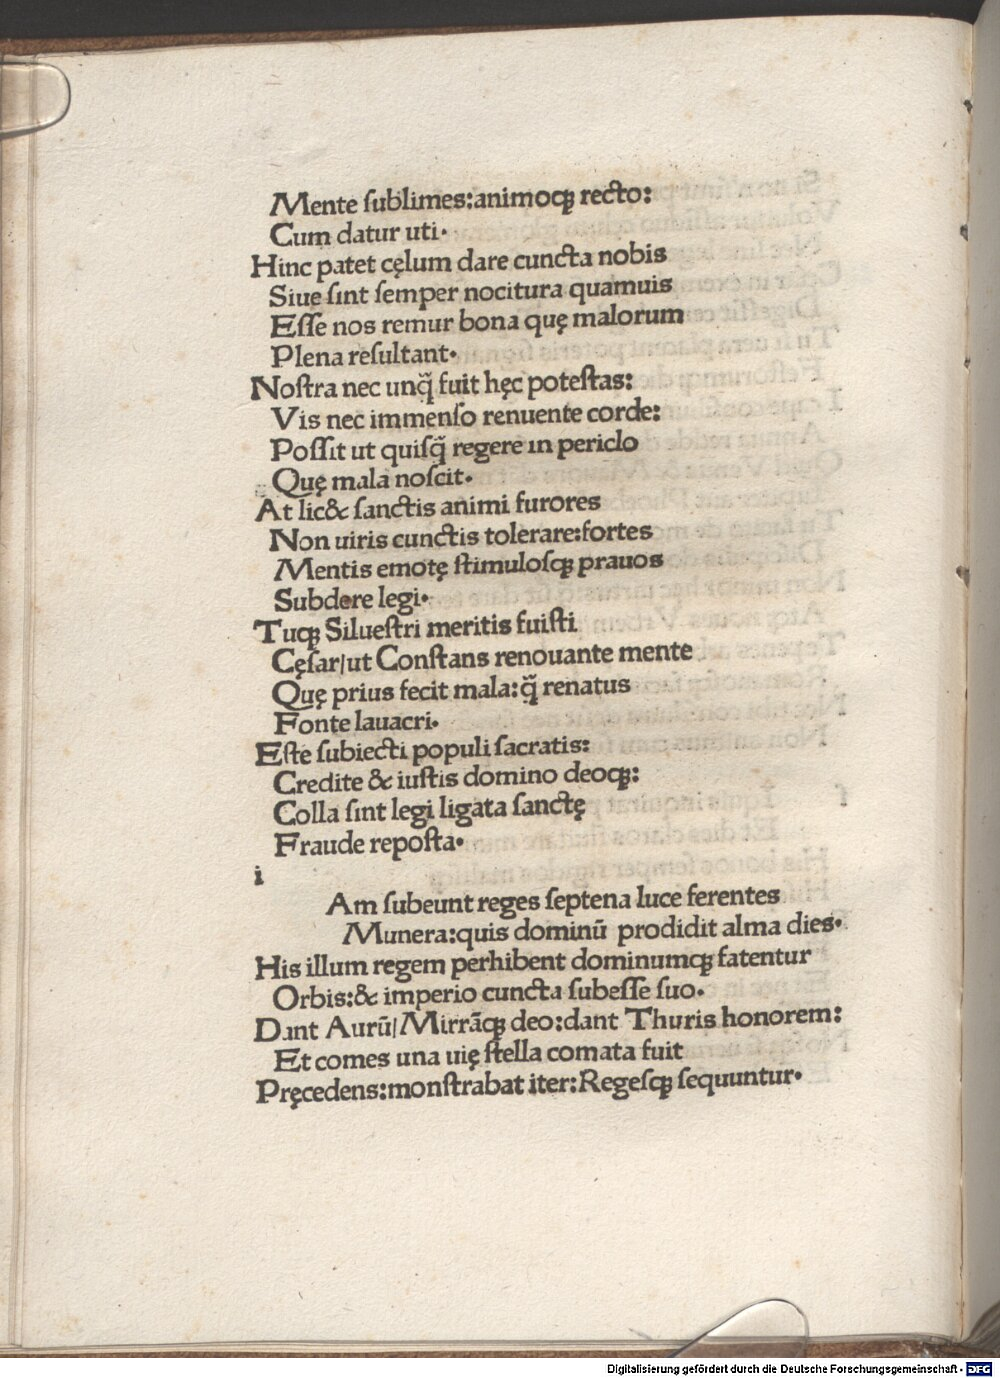 Mente ſublimes:animoqꝫ recto:
Cum datur uti·
Hinc patet cęlum dare cuncta nobis
Siuę ſint ſemper nocitura quamuis
Eſſe nos remur bona quę malorum
Plena reſultant·
Noſtra nec unq̃ fuit hęc poteſtas:
Vis nec immenſo renuente corde:
Poſſit ut quiſq̃ regere in periclo
Quę mala noſcit·
At lic& ſanctis animi furores
Non uiris cunctis tolerare:fortes
Mentis emotę ſtimuloſqꝫ prauos
Subdere legi·
Tuqꝫ Silueſtri meritis fuiſti
Cęſar/ut Conſtans renouante mente
Quę prius fecit mala:q̃ renatus
Fonte lauacri·
Eſte ſubiecti populi ſacratis:
Credite & iuſtis domino deoqꝫ:
Colla ſint legi ligata ſanctę
Fraude repoſta·
i
Am ſubeunt reges ſeptena luce ferentes
Munera:quis dominū prodidit alma dies·
His illum regem perhibent dominumqꝫ fatentur
Orbis:& imperio cuncta ſubeſſe ſuo·
Dant Aurū/Mirrãqꝫ deo:dant Thuris honorem:
Et comes una uię ſtella comata fuit
Pręcedens:monſtrabat iter:Regeſqꝫ ſequuntur·
Digitalisierung gefördert durch die Deutsche Forschungsgemeinschaft - DFG